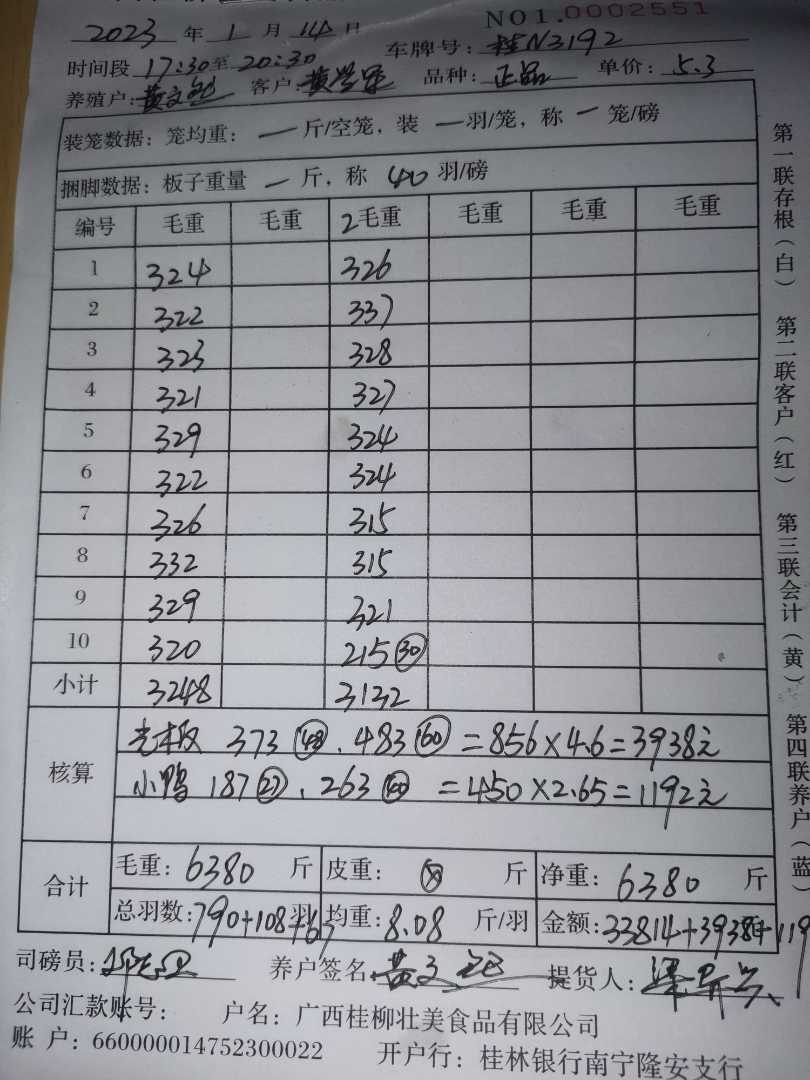 NO1.0002551
2023 年 1 月 14 日 车牌号: 桂N3192
时间段 17:30至20:30 品种: 正品 单价: 5.3
养殖户: 黄文 客户: 黄
装笼数据: 笼均重: 一 斤/空笼, 装 一 羽/笼, 称 一 笼/磅
捆脚数据: 板子重量 一 斤, 称 40 羽/磅
编号 毛重 毛重 2毛重 毛重 毛重 毛重
1 324 326
2 322 337
3 323 328
4 321 327
5 329 324
6 322 324
7 326 315
8 332 315
9 329 321
10 320 215 30
小计 3248 3132
核算
光板 373 48 、483 60 =856×4.6=3938元
小鸭 187 27 、263 40 =450×2.65=1192元
合计
毛重: 6380 斤 皮重: 斤 净重: 6380 斤
总羽数: 790+108+67 羽 均重: 8.08 斤/羽 金额: 33814+3938+119
司磅员: 养户签名: 黄文 提货人:
公司汇款账号: 户名: 广西桂柳壮美食品有限公司
账 户: 660000014752300022 开户行: 桂林银行南宁隆安支行
第一联存根(白) 第二联客户(红) 第三联会计(黄) 第四联养户(蓝)